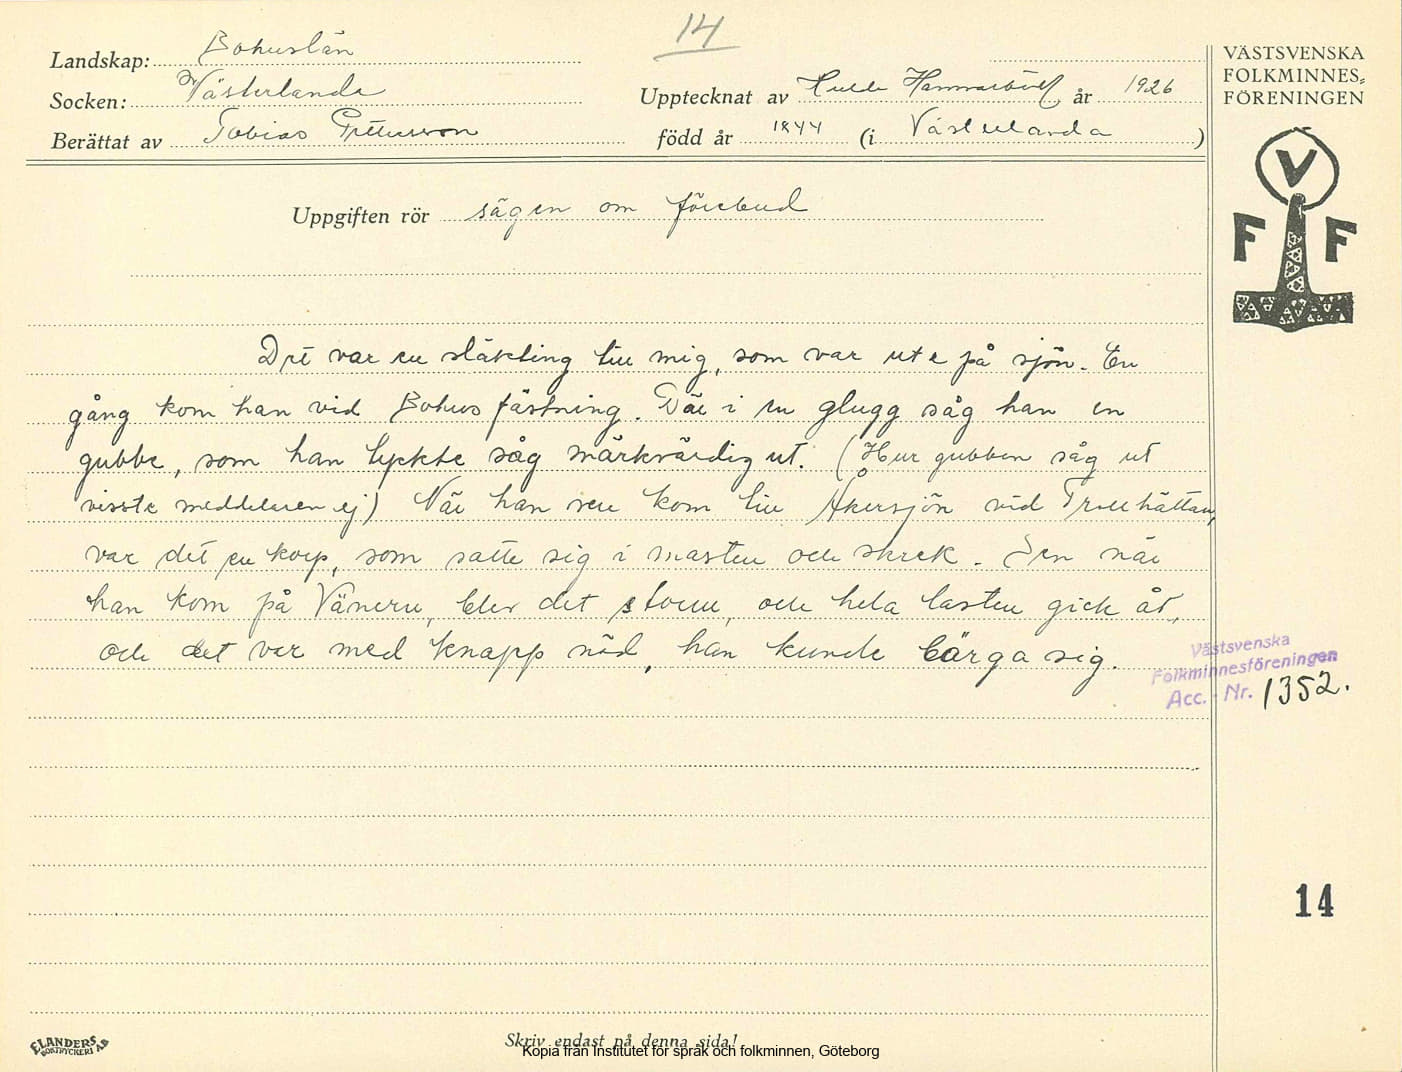 14
Landskap: Bohuslän
Socken: Västerlanda
Berättat av Tobias Pettersson
Upptecknat av Hulda Hammarbäck år 1926
född år 1844 (i Västerlanda)
Uppgiften rör sägen om förebud
VÄSTSVENSKA
FOLKMINNES-
FÖRENINGEN
V
F F
Det var en släkting till mig, som var ute på sjön. En
gång kom han vid Bohus fästning. Där i en glugg såg han en
gubbe, som han tyckte såg märkvärdig ut. (Hur gubben såg ut
visste meddelaren ej) När han sen kom till Åkersjön vid Trollhättan,
var det en korp, som satte sig i masten och skrek. Sen när
han kom på Vänern, blev det storm, och hela lasten gick åt,
och det var med knapp nöd, han kunde bärga sig.
Västsvenska
Folkminnesföreningen
Acc. - Nr. 1352.
14
ELANDERS
BOKTRYCKERI AB
Skriv endast på denna sida!
Kopia från Institutet för språk och folkminnen, Göteborg